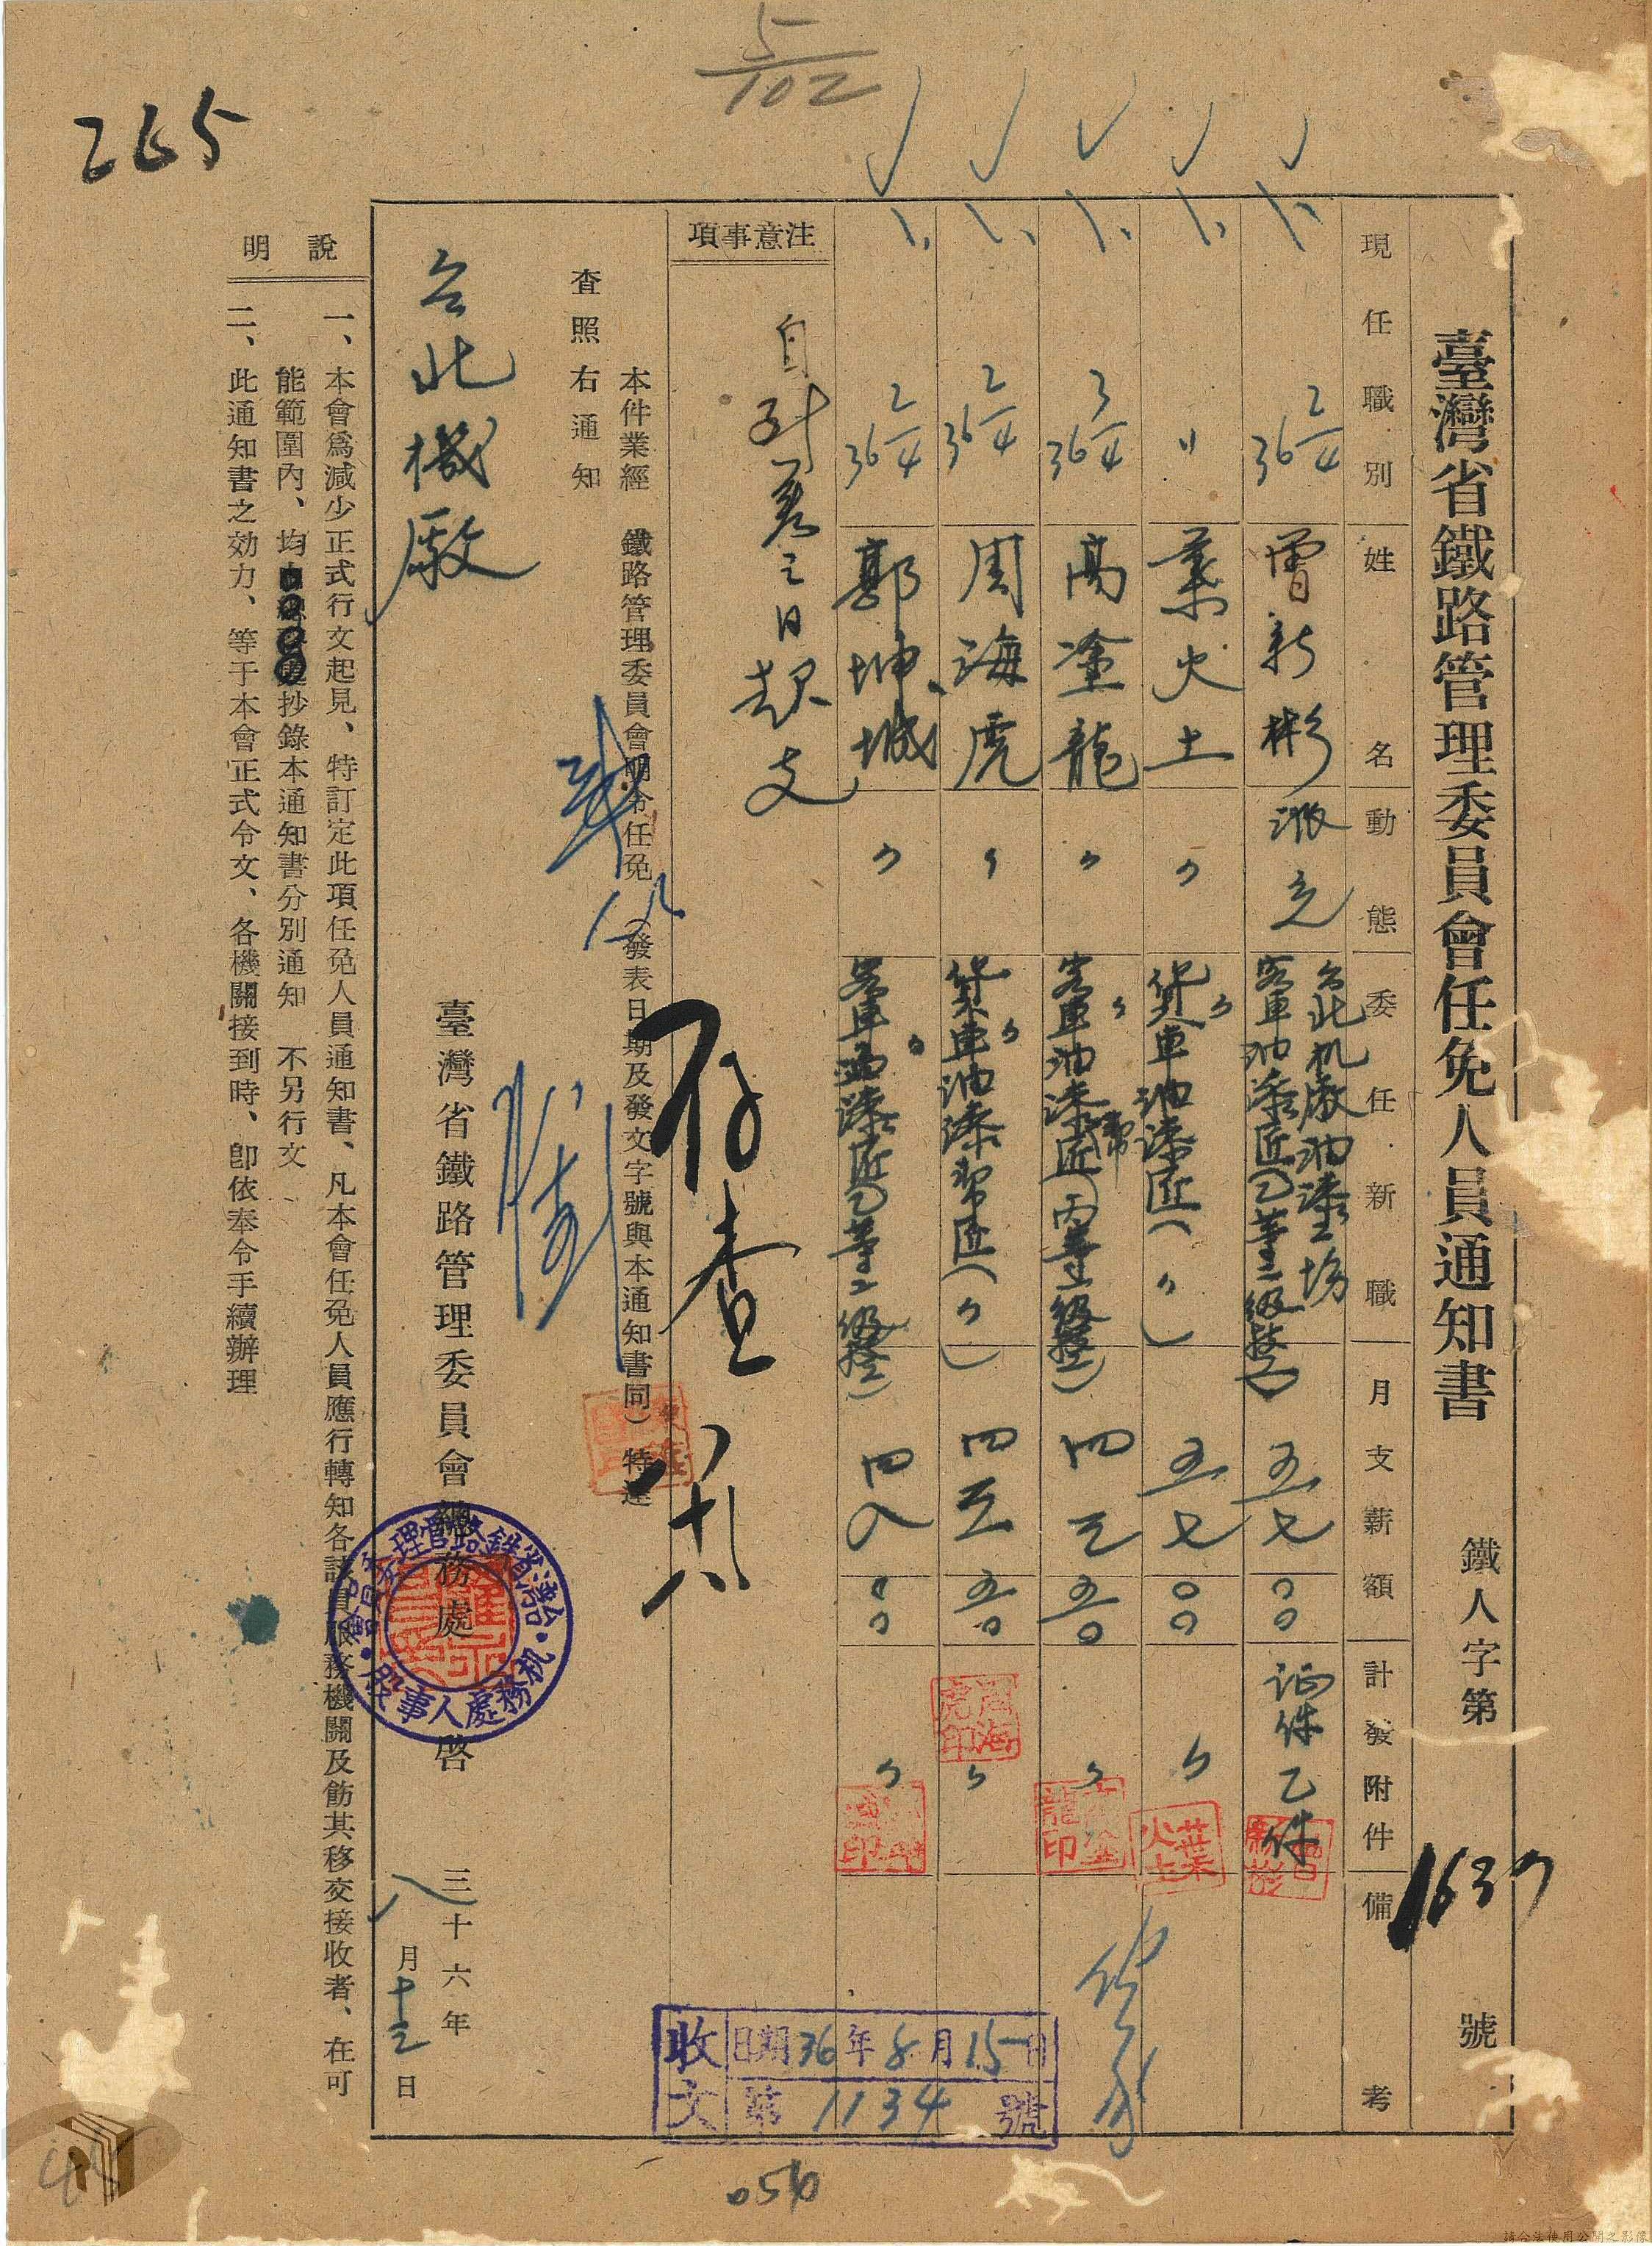 5/102
265
臺灣省鐵路管理委員會任免人員通知書
鐵人字第 1637 號
現任職別 姓名 動態 委任新職 月支薪額 計發附件 備考
2/4 36 曾新彬 派充 台北机廠油漆工場
客車油漆匠乙等二級 五七 00 證件乙件
〃 葉火土 〃 〃貨車油漆匠(〃) 五七 00 〃
葉火土
3/4 36 高塗龍 〃 〃客車油漆幫匠(丙等一級) 四三 五0 〃
2/4 36 周海虎 〃 〃貨車油漆幫匠(〃) 四三 五0 〃
周海虎印
2/4 36 郭坤城 〃 〃客車油漆匠 四八 00 〃
注意事項
自到差之日起支
存查
本件業經 鐵路管理委員會明令任免(發表日期及發文字號與本通知書同)特達
查照右通知
台北機廠
臺灣省鐵路管理委員會總務處啓
三十六年八月十三日
說明
一、本會爲減少正式行文起見、特訂定此項任免人員通知書、凡本會任免人員應行轉知各該員服務機關及飭其移交接收者、在可
能範圍內、均抄錄本通知書分別通知 不另行文
二、此通知書之効力、等于本會正式令文、各機關接到時、卽依奉令手續辦理
收文 日期36年8月15日
第1134號
056
請合法使用公開之影像